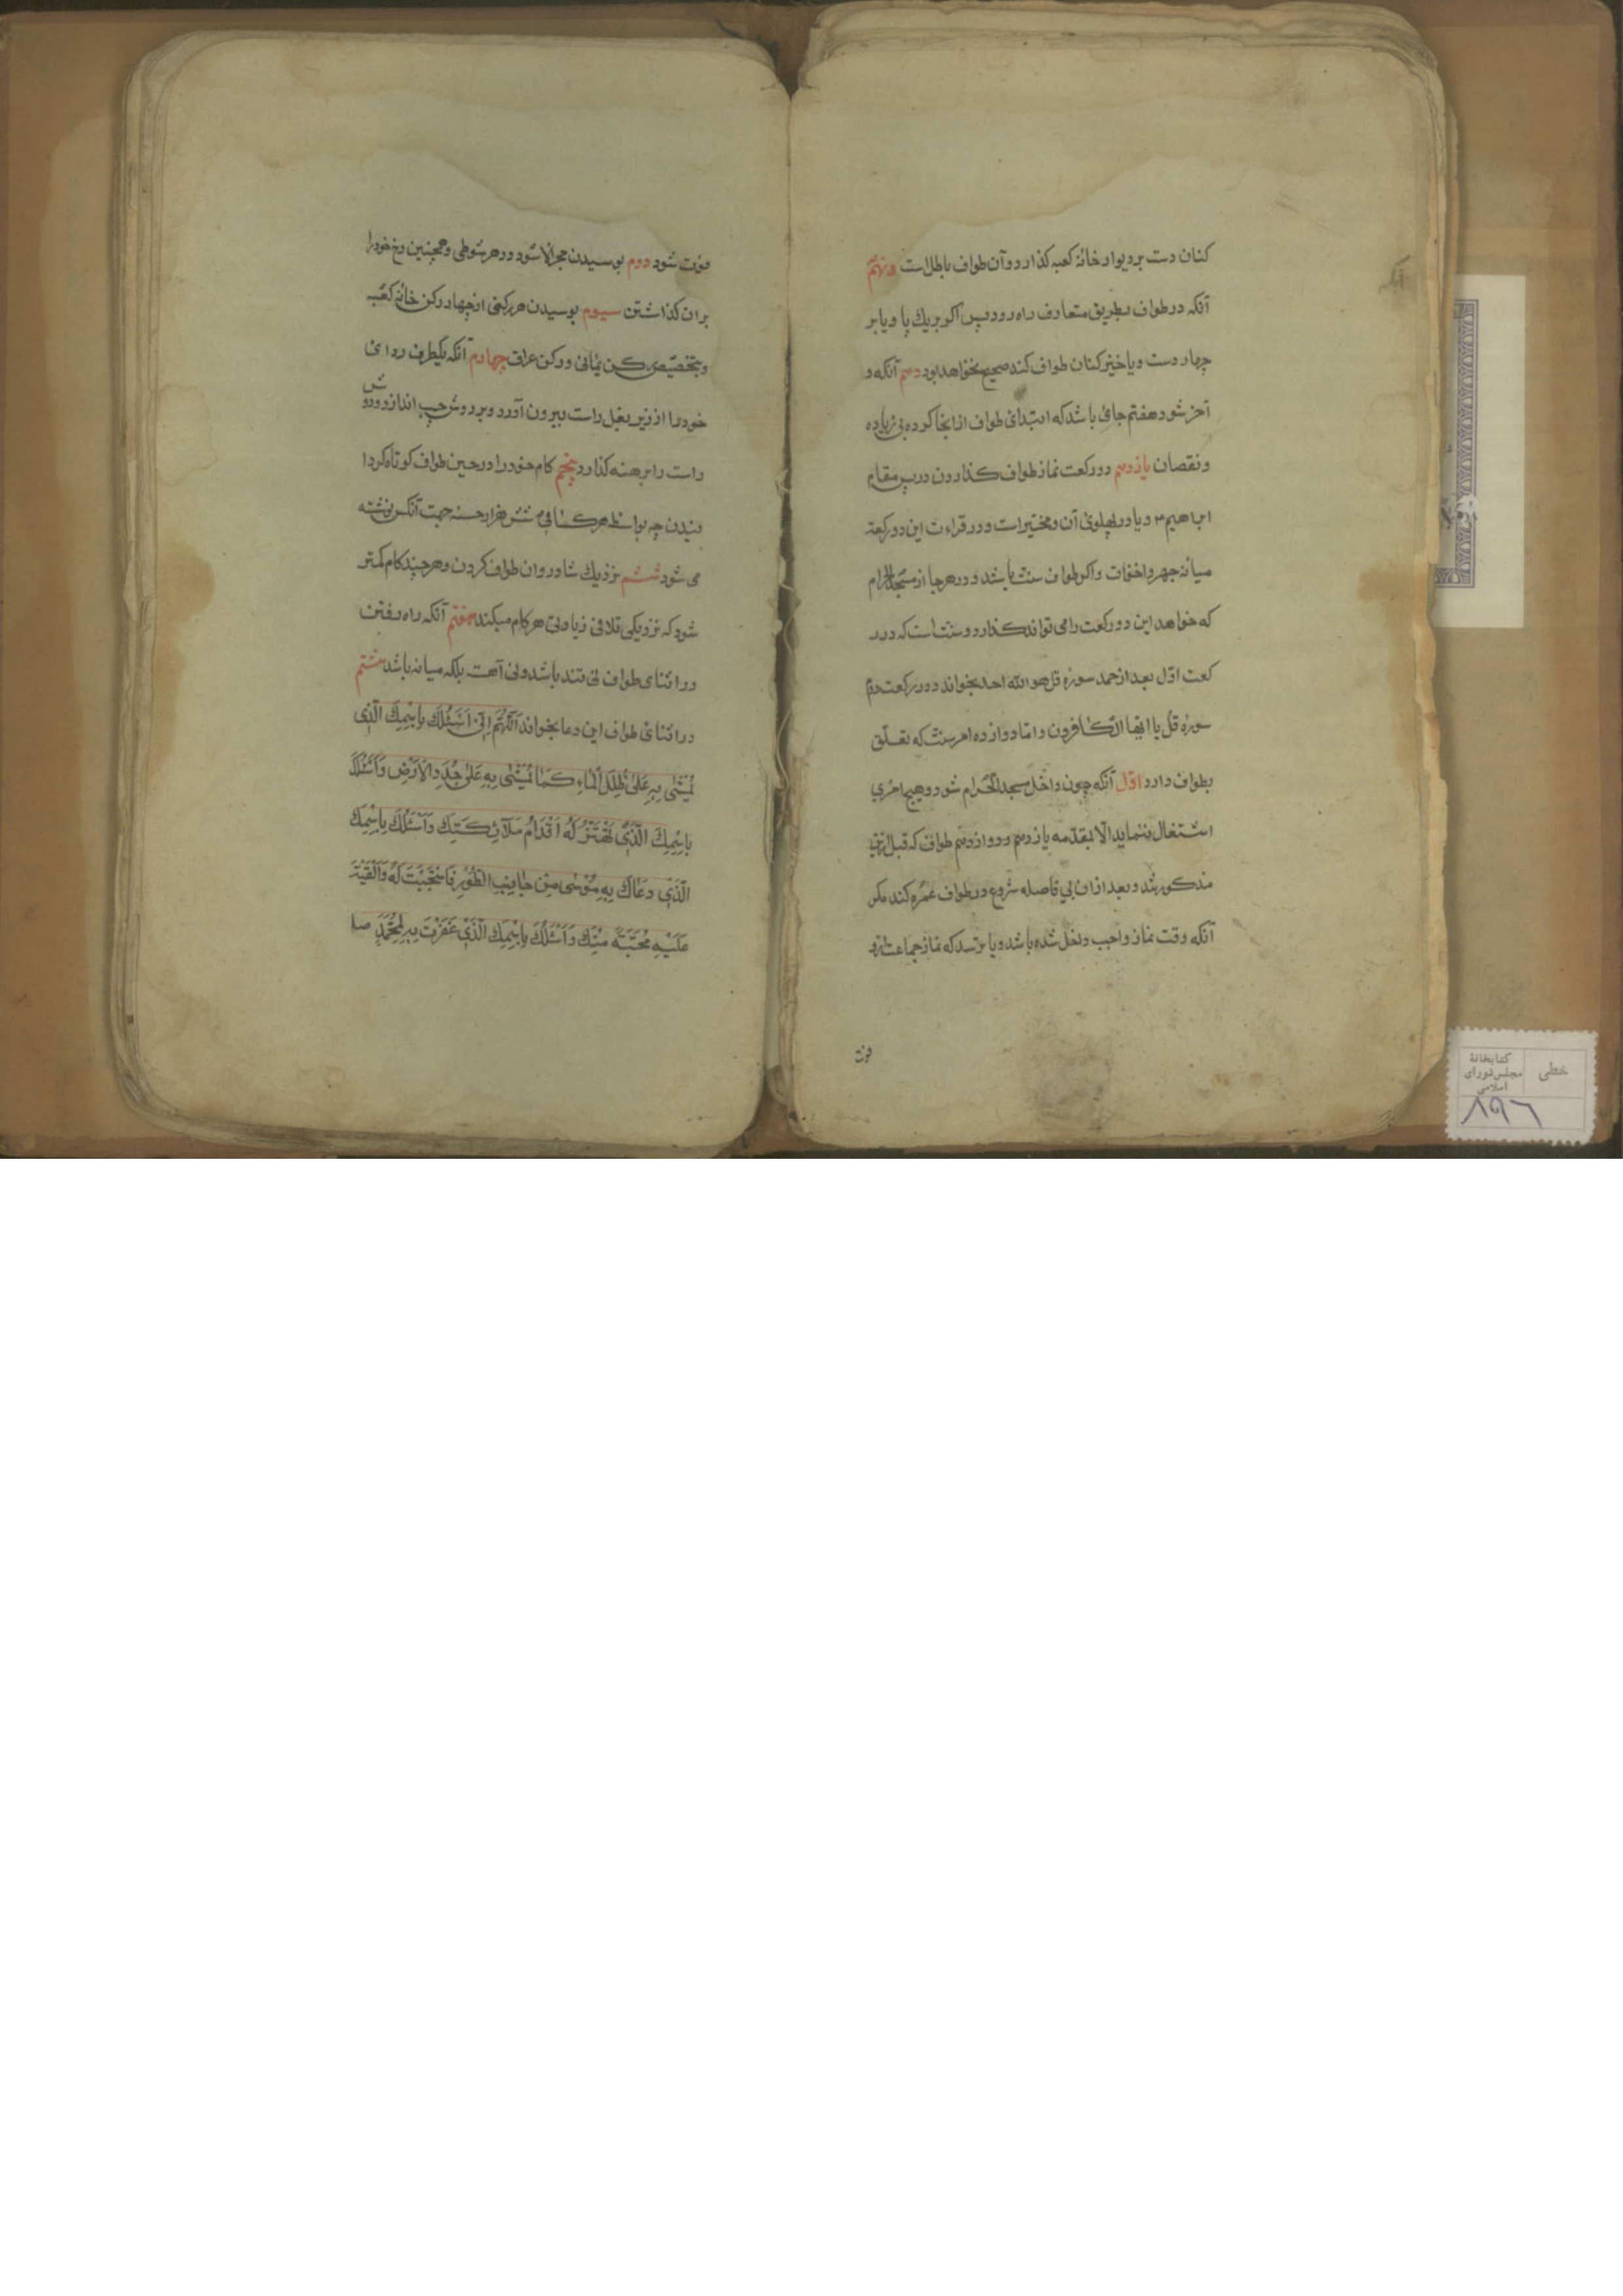 کنان دست بر دیوار خانهٔ کعبه کذارد و آن طواف باطل است و نهم
آنکه در طواف بطریق متعارف راه رود پس اکر بریك پا و یا بر
چهار دست و یا خیز کنان طواف کند صحیح نخواهد بود دهم آنکه د
آخر شود هفتم جائی باشد که ابتدای طواف از انجا کرده بی زیاده
و نقصان یازدهم دو رکعت نماز طواف کذاردن در پس مقام
ابراهیم ۴ و یا در پهلوی آن و مختیر است و در قراءت این دو رکعت
میانه جهر و اخفات و اکر طواف سنت باشد و در هر جا از مسجد الحرام
که خواهد این دو رکعت را می تواند کذارد و سنت است که در ر
کعت اول بعد از حمد سوره قل هو الله احد بخواند و در رکعت دوم
سوره قل یا ایها الکافرون و اما دوازده امر سنت که تعلق
بطواف دارد اول آنکه چون داخل مسجد الحرام شود و هیچ امری
اشتغال ننماید الا بمقدمه یازدهم و دوازدهم طواف که قبل ازین
مذکور شد و بعد از ان بی فاصله شروع در طواف عمره کند مکر
آنکه وقت نماز واجب داخل شده باشد و یا ترسد که نماز جماعت از و
فوت
فوت شود دوم بوسیدن حجر الاسود در هر شوطی و همچنین رخ خود را
بران کذاشتن سیوم بوسیدن هر رکنی از چهار رکن خانه کعبه
و بتخصیص رکن یمانی و رکن عراقی چهارم آنکه یکطرف ردای
خود را از زیر بغل راست بیرون آورد و بر دوش چپ اندازد و دوش
راست را برهنه کذارد پنجم کام خود را در حین طواف کوتاه کردا
نیدن چه بواسطه هر کامی شش هزار حسنه جهت آنکس نوشته
می شود ششم نزدیك شادروان طواف کردن و هر چند کام کمتر
شود که نزدیکی تلافی زیادتی هر کام میکند هفتم آنکه راه رفتن
در اثنای طواف نی تند باشد و نی آهسته بلکه میانه باشد هشتم
در اثنای طواف این دعا بخواند اَللّٰهُمَّ اِنّی اَسْئَلُكَ بِاسْمِكَ الَّذِی
یُمْشٰی بِهِ عَلٰی ظُلَلِ الْمٰاءِ کَمٰا یُمْشٰی بِهِ عَلٰی جُدَدِ الْاَرْضِ وَاَسْئَلُكَ
بِاسْمِكَ الَّذِی تَهْتَزُّ لَهُ اَقْدَامُ مَلَائِکَتِكَ وَاَسْئَلُكَ بِاسْمِكَ
الَّذِی دَعَاكَ بِهِ مُوْسٰی مِنْ جٰانِبِ الطُّوْرِ فَاسْتَجَبْتَ لَهُ وَاَلْقَیْتَ
عَلَیْهِ مُحَبَّةً مِنْكَ وَاَسْئَلُكَ بِاسْمِكَ الَّذِی غَفَرْتَ بِهِ لِمُحَمَّدٍ صلی
خطی
کتابخانهٔ
مجلس شورای
اسلامی
۸۹۶